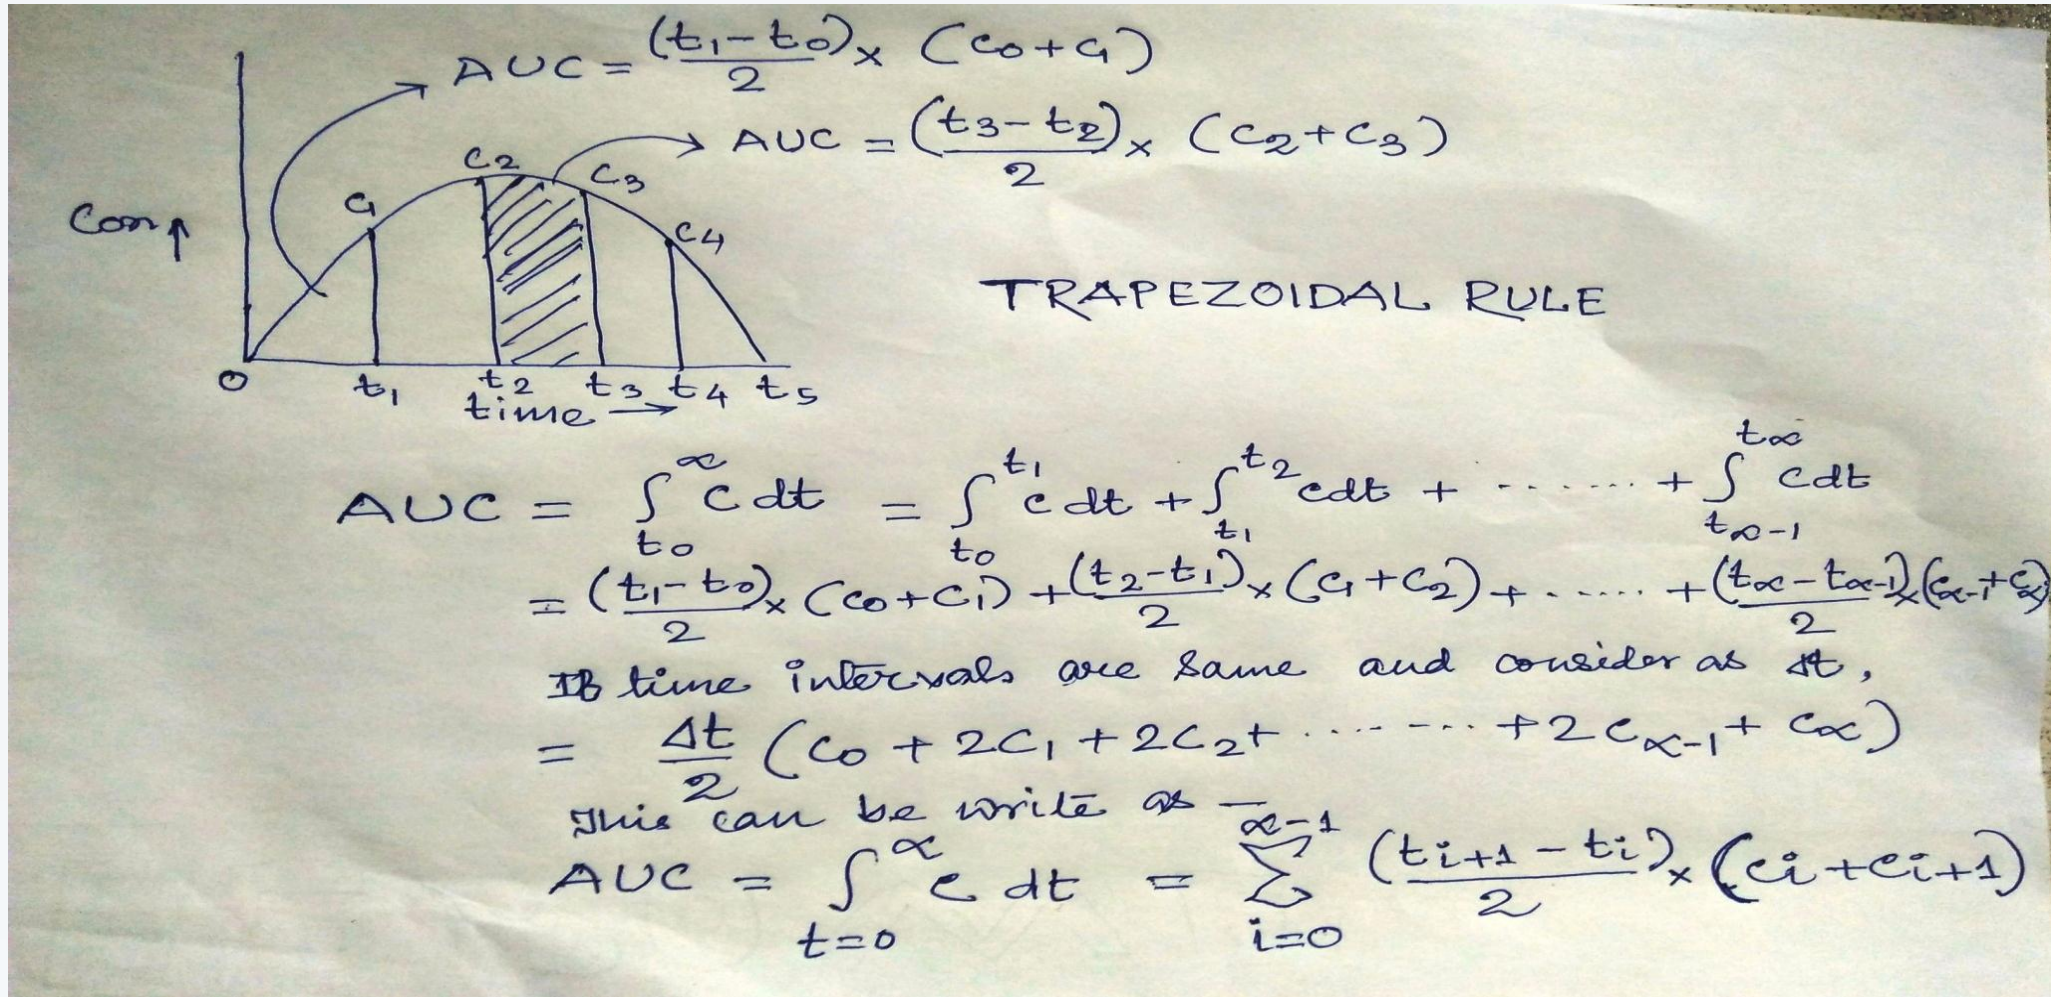 AUC = (t₁-t₀)/2 × (C₀+C₁)
AUC = (t₃-t₂)/2 × (C₂+C₃)
C₂
C₃
C₁
Con ↑
C₄
TRAPEZOIDAL RULE
0 t₁ t₂ t₃ t₄ t₅
time →
AUC = ∫_{t₀}^{∝} C dt = ∫_{t₀}^{t₁} C dt + ∫_{t₁}^{t₂} C dt + ....... + ∫_{t∝-1}^{t∝} C dt
= (t₁-t₀)/2 × (C₀+C₁) + (t₂-t₁)/2 × (C₁+C₂) + ...... + (t∝-t∝-1)/2 × (C∝-1+C∝)
If time intervals are same and consider as Δt,
= Δt/2 (C₀ + 2C₁ + 2C₂ + ....... + 2C∝-1 + C∝)
This can be write as –
AUC = ∫_{t=0}^{∝} C dt = Σ_{i=0}^{∝-1} (t_{i+1} - t_i)/2 × (C_i + C_{i+1})